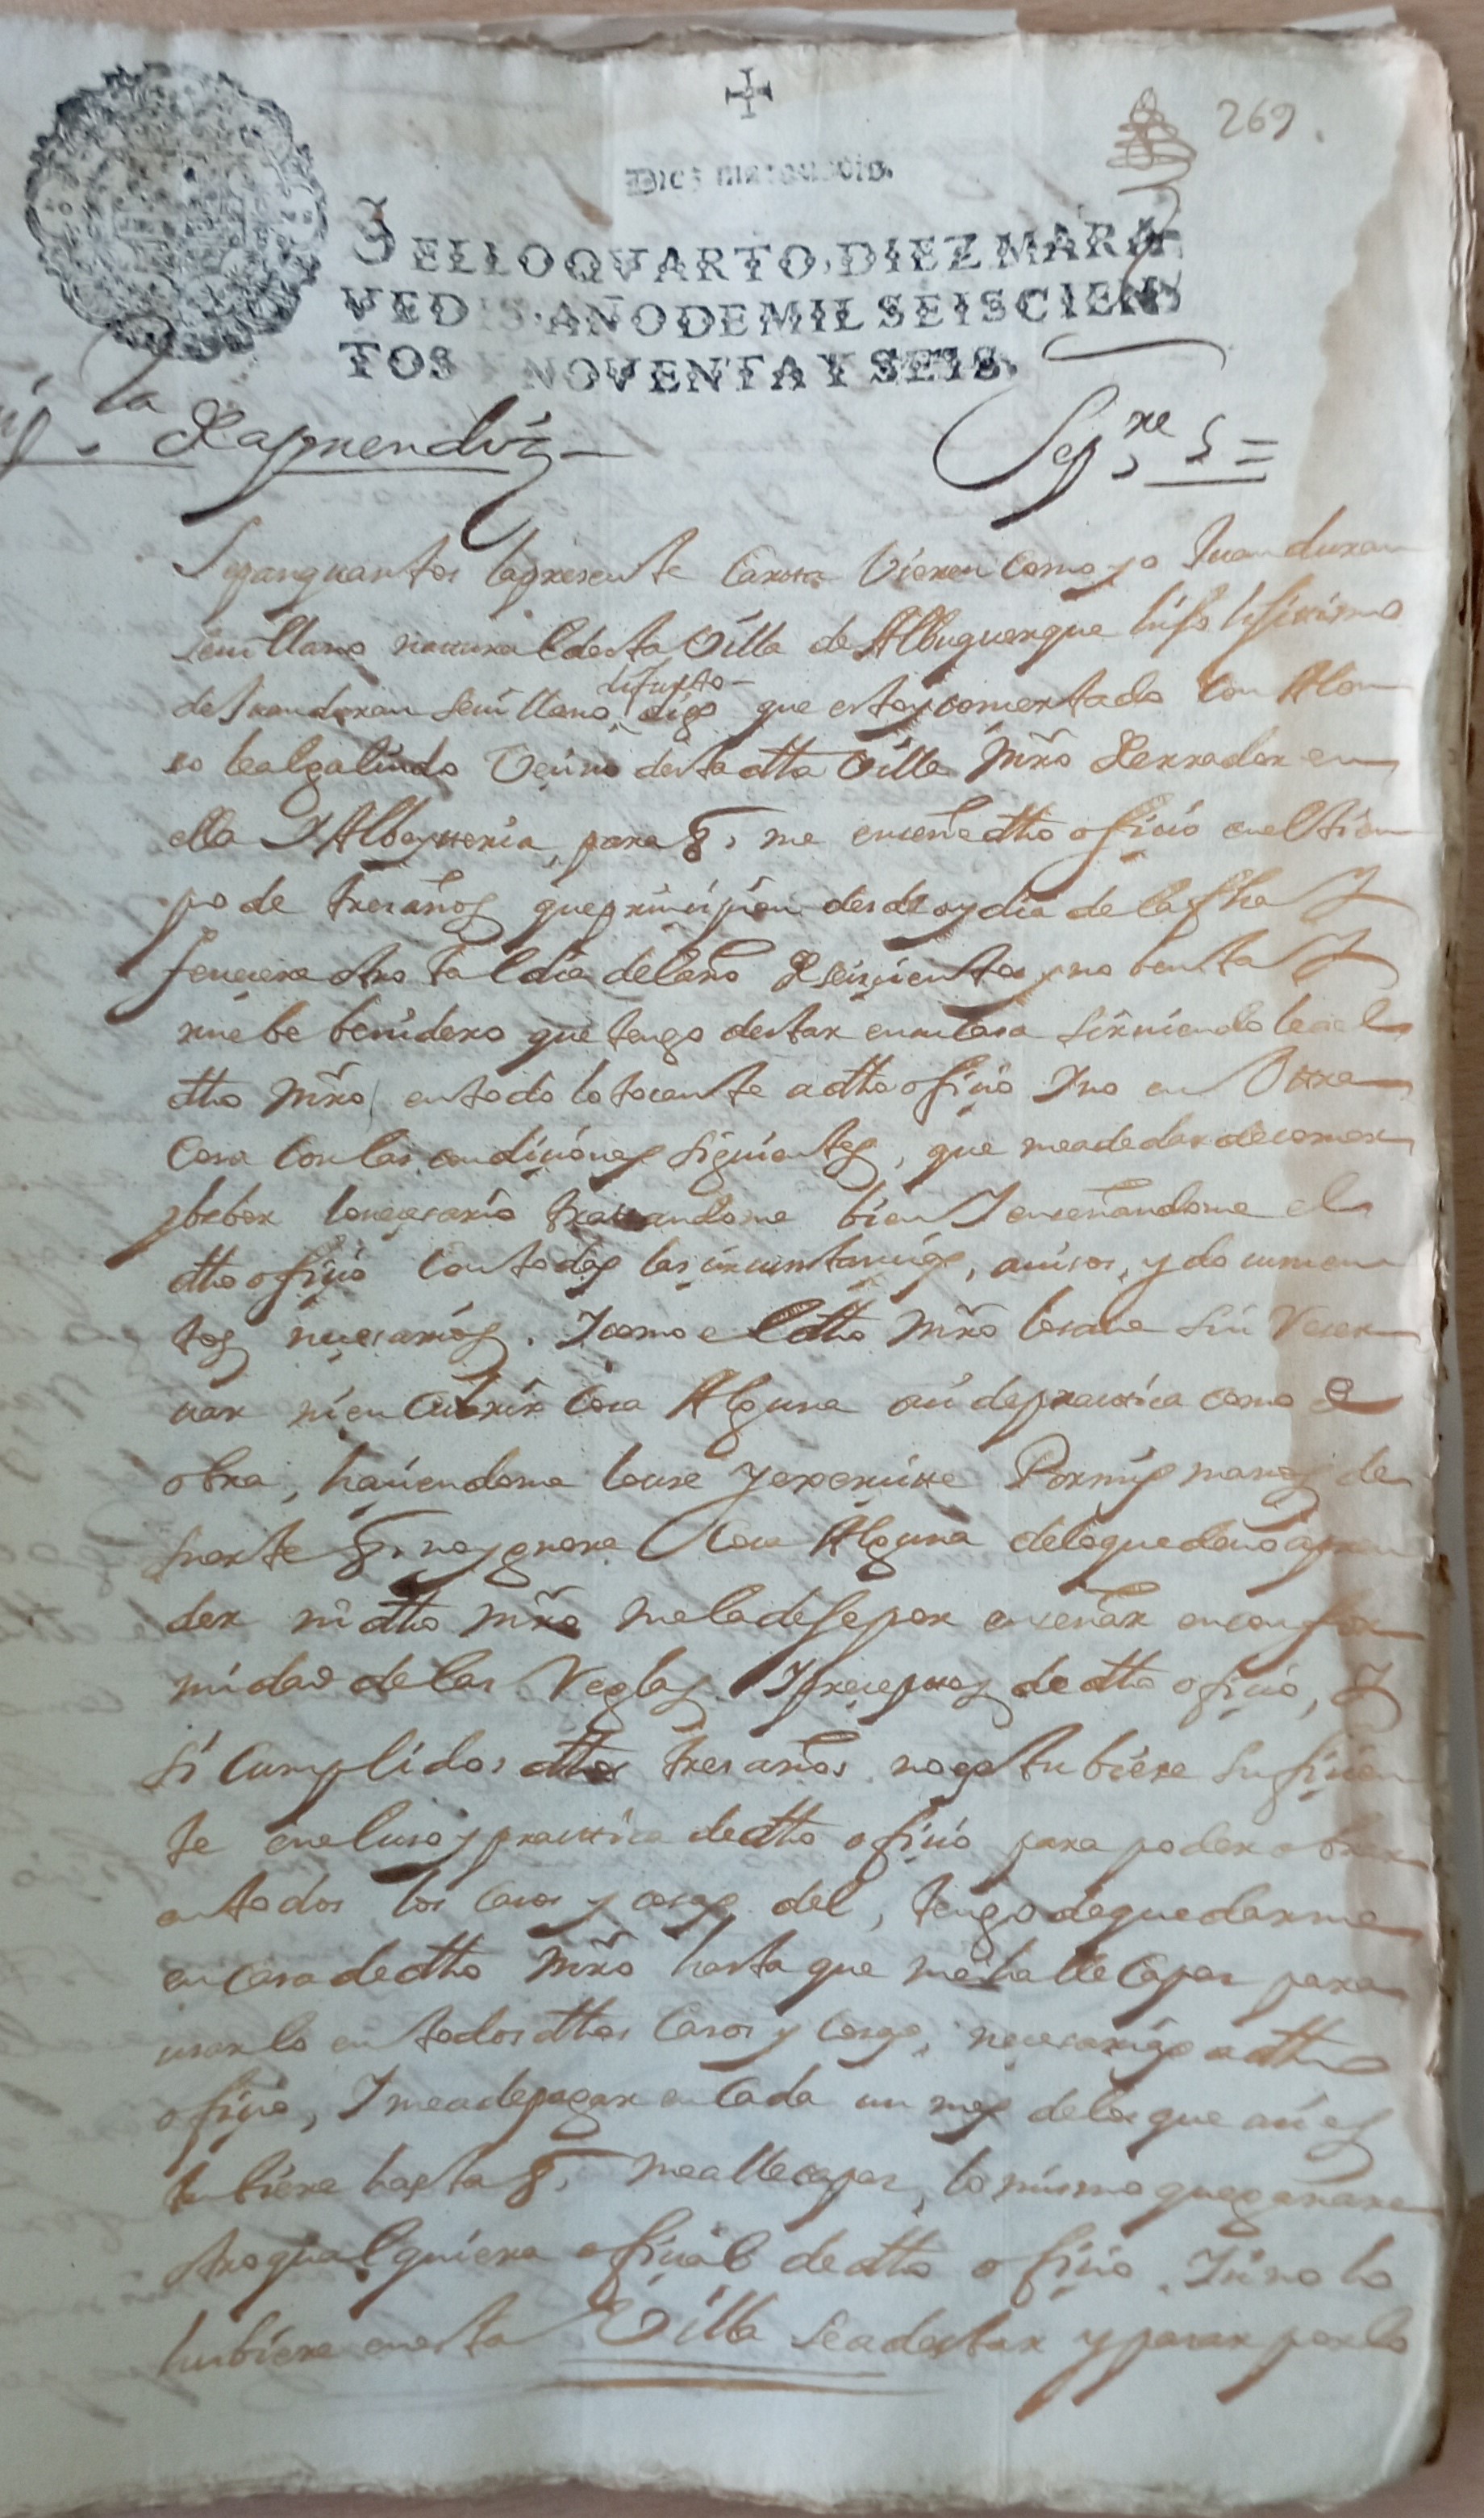 269
Diez maravedis.
SELLO QVARTO, DIEZ MARA
VEDIS, AÑO DE MIL SEISCIEN
TOS Y NOVENTA Y SEIS.
Sepre 5 =
Sepan quantos la presente carta Vieren como yo Juan duran
seuillano natural desta Villa de Alburquerque hijo lijitimo
difunto
de Juan duran seuillano, digo que estoy conzertado con Alon
so leal galindo Veçino desta dtta Villa Mro Herrador en
ella Y Albeyteria, para q. me enseñe dtho ofiçio en el tiem
po de tres años que prinçipian desde oy dia de la fha Y
feneçera otro tal dia del año de seisçientos y nobenta Y
nuebe benidero que tengo de star en su casa siruiendole al
dtho Mro en todo lo tocante a dtho ofiçio Y no en Otra
Cosa Con las condiçiones siguientes, que me a de dar de comer
y beber lo neçesario tratandome bien Y enseñandome el
dtho ofiçio Con todas las circunstançias, auisos, y documen
tos neçesarios. Y como el dtho Mro lo saue sin Reser
uar ni encubrir Cosa Alguna asi de practica como de
obra, haçiendome lo use Y exerçite Por mis manos de
suerte q. no ygnore Cosa Alguna de lo que deuo apren
der ni dtho Mro me la deje por enseñar en confor
midad de las Reglas Y preçeptos de dtho ofiçio, Y
si Cumplidos dthos tres años no estubiere sufiçien
te en el uso y practica de dtho ofiçio para poder obrar
en todos los casos y cosas del, tengo de quedarme
en casa de dtho Mro hasta que me halle Capaz para
usarlo en todos dthos Casos y Cosas, neçesarios a dtho
ofiçio, Y me a de pagar en Cada un mes de los que asi es
tubiere hasta q. me alle capaz, lo mismo que ganare
otro qualquiera ofiçial de dtho ofiçio, Y si no lo
hubiere en esta Villa se a de star y pasar por lo